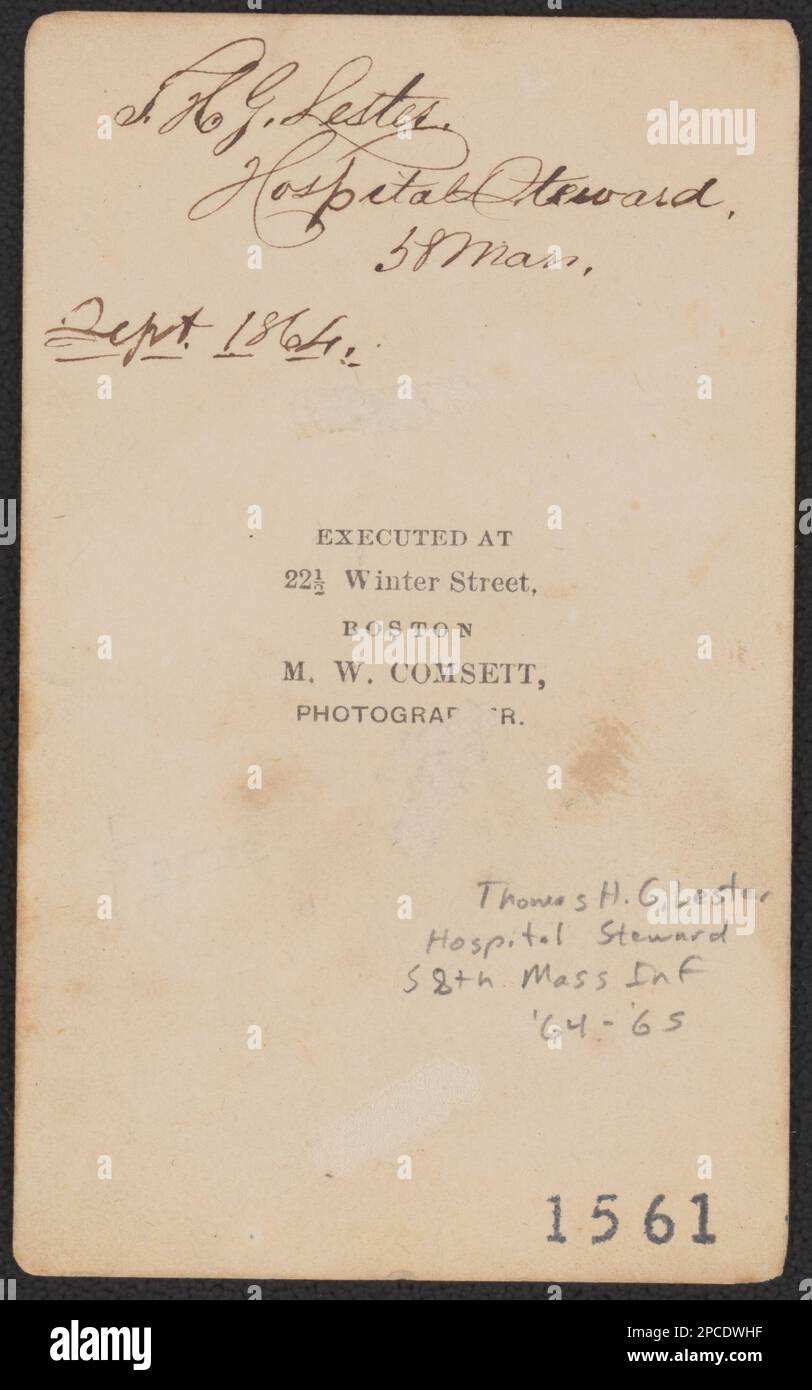 T. H. G. Lester.
Hospital Steward.
58 Mass.
Sept. 1864.
EXECUTED AT
22½ Winter Street,
BOSTON
M. W. COMSETT,
PHOTOGRAPHER.
Thomas H. G. Lester
Hospital Steward
58th Mass Inf
'64-'65
1561
alamy
Image ID: 2PCDWHF
www.alamy.com